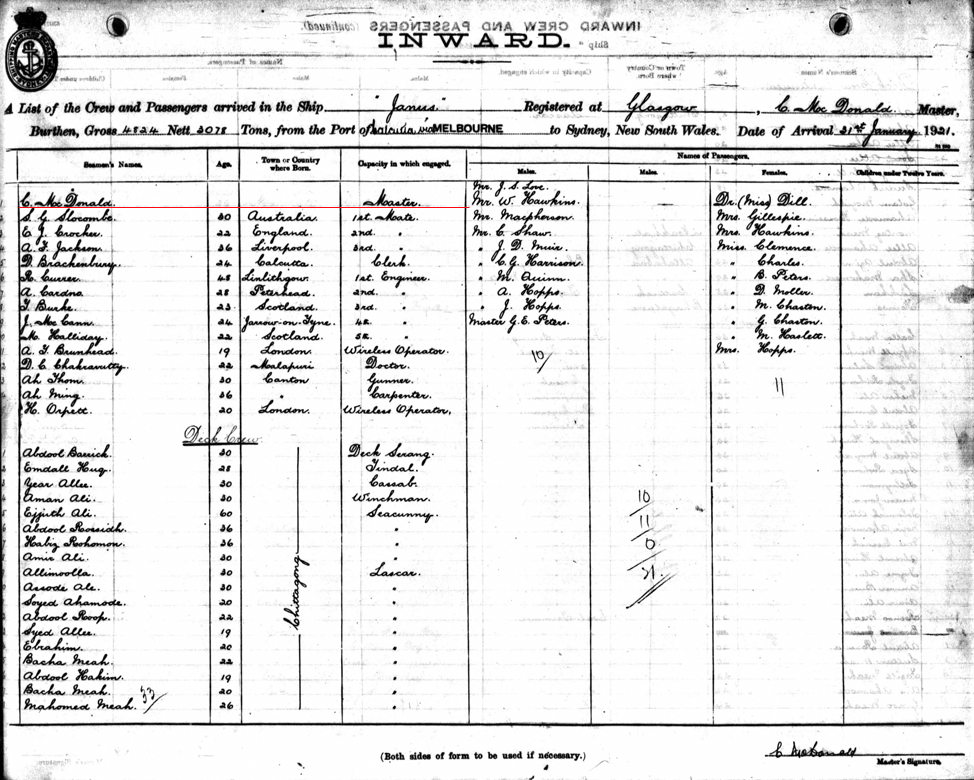 INWARD CREW AND PASSENGERS (continued)
INWARD.
A List of the Crew and Passengers arrived in the Ship "Janus" Registered at Glasgow, C. McDonald Master,
Burthen, Gross 4824 Nett 3078 Tons, from the Port of Calcutta via MELBOURNE to Sydney, New South Wales. Date of Arrival 31st January 1921.
Seamen's Names. Age. Town or Country where Born. Capacity in which engaged. Names of Passengers.
Males. Males. Females. Children under Twelve Years.
Mr. J. S. Love.
C. McDonald. Master. Mr. W. Hawkins. Dr. (Miss) Dill.
S. G. Slocombe. 30 Australia. 1st. Mate. Mr. Macpherson. Mrs. Gillespie.
E. J. Crocker. 22 England. 2nd. " Mr. C. Shaw. Mrs. Hawkins.
A. T. Jackson. 36 Liverpool. 3rd. " " J. D. Muir. Miss. Clemence.
D. Brachenbury. 24 Calcutta. Clerk. " C. G. Harrison. " Charles.
R. Currer. 48 Linlithgow. 1st. Engineer. " M. Quinn. " B. Peters.
A. Cardno. 28 Peterhead. 2nd. " " A. Hopps. " D. Moller.
T. Burke. 23 Scotland. 3rd. " " J. Hopps. " M. Charton.
J. McCann. 24 Jarrow-on-Tyne. 4th. " Master G. E. Peters. " G. Charton.
M. Halliday. 22 Scotland. 5th. " " M. Haslett.
A. T. Brunhead. 19 London. Wireless Operator. 10/ Mrs. Hopps.
D. C. Chakravutty. 22 Malapuri Doctor.
Ah Thom. 30 Canton Gunner. 11
Ah Ming. 36 " Carpenter.
H. Orpett. 20 London. Wireless Operator,
Deck Crew.
Abdool Barrick. 30 Deck Serang.
Emdall Huq. 28 Tindal.
Year Allee. 30 Cassab.
Aman Ali. 30 Winchman. 10
Ejjuth Ali. 60 Seacunny. 11
Abdool Rossidh. 36 "
Habiz Rohomon. 36 " 0
Amir Ali. 30 "
Allimoolla. 30 Chittagong Lascar. 21.
Assode Ale. 30 "
Soyed Ahamode. 20 "
Abdool Roop. 22 "
Syed Allee. 19 "
Ebrahim. 20 "
Bacha Meah. 22 "
Abdool Hakim. 19 "
Bacha Meah. 20 "
Mahomed Meah. 33/ 26 "
(Both sides of form to be used if necessary.) C McDonald
Master's Signature.